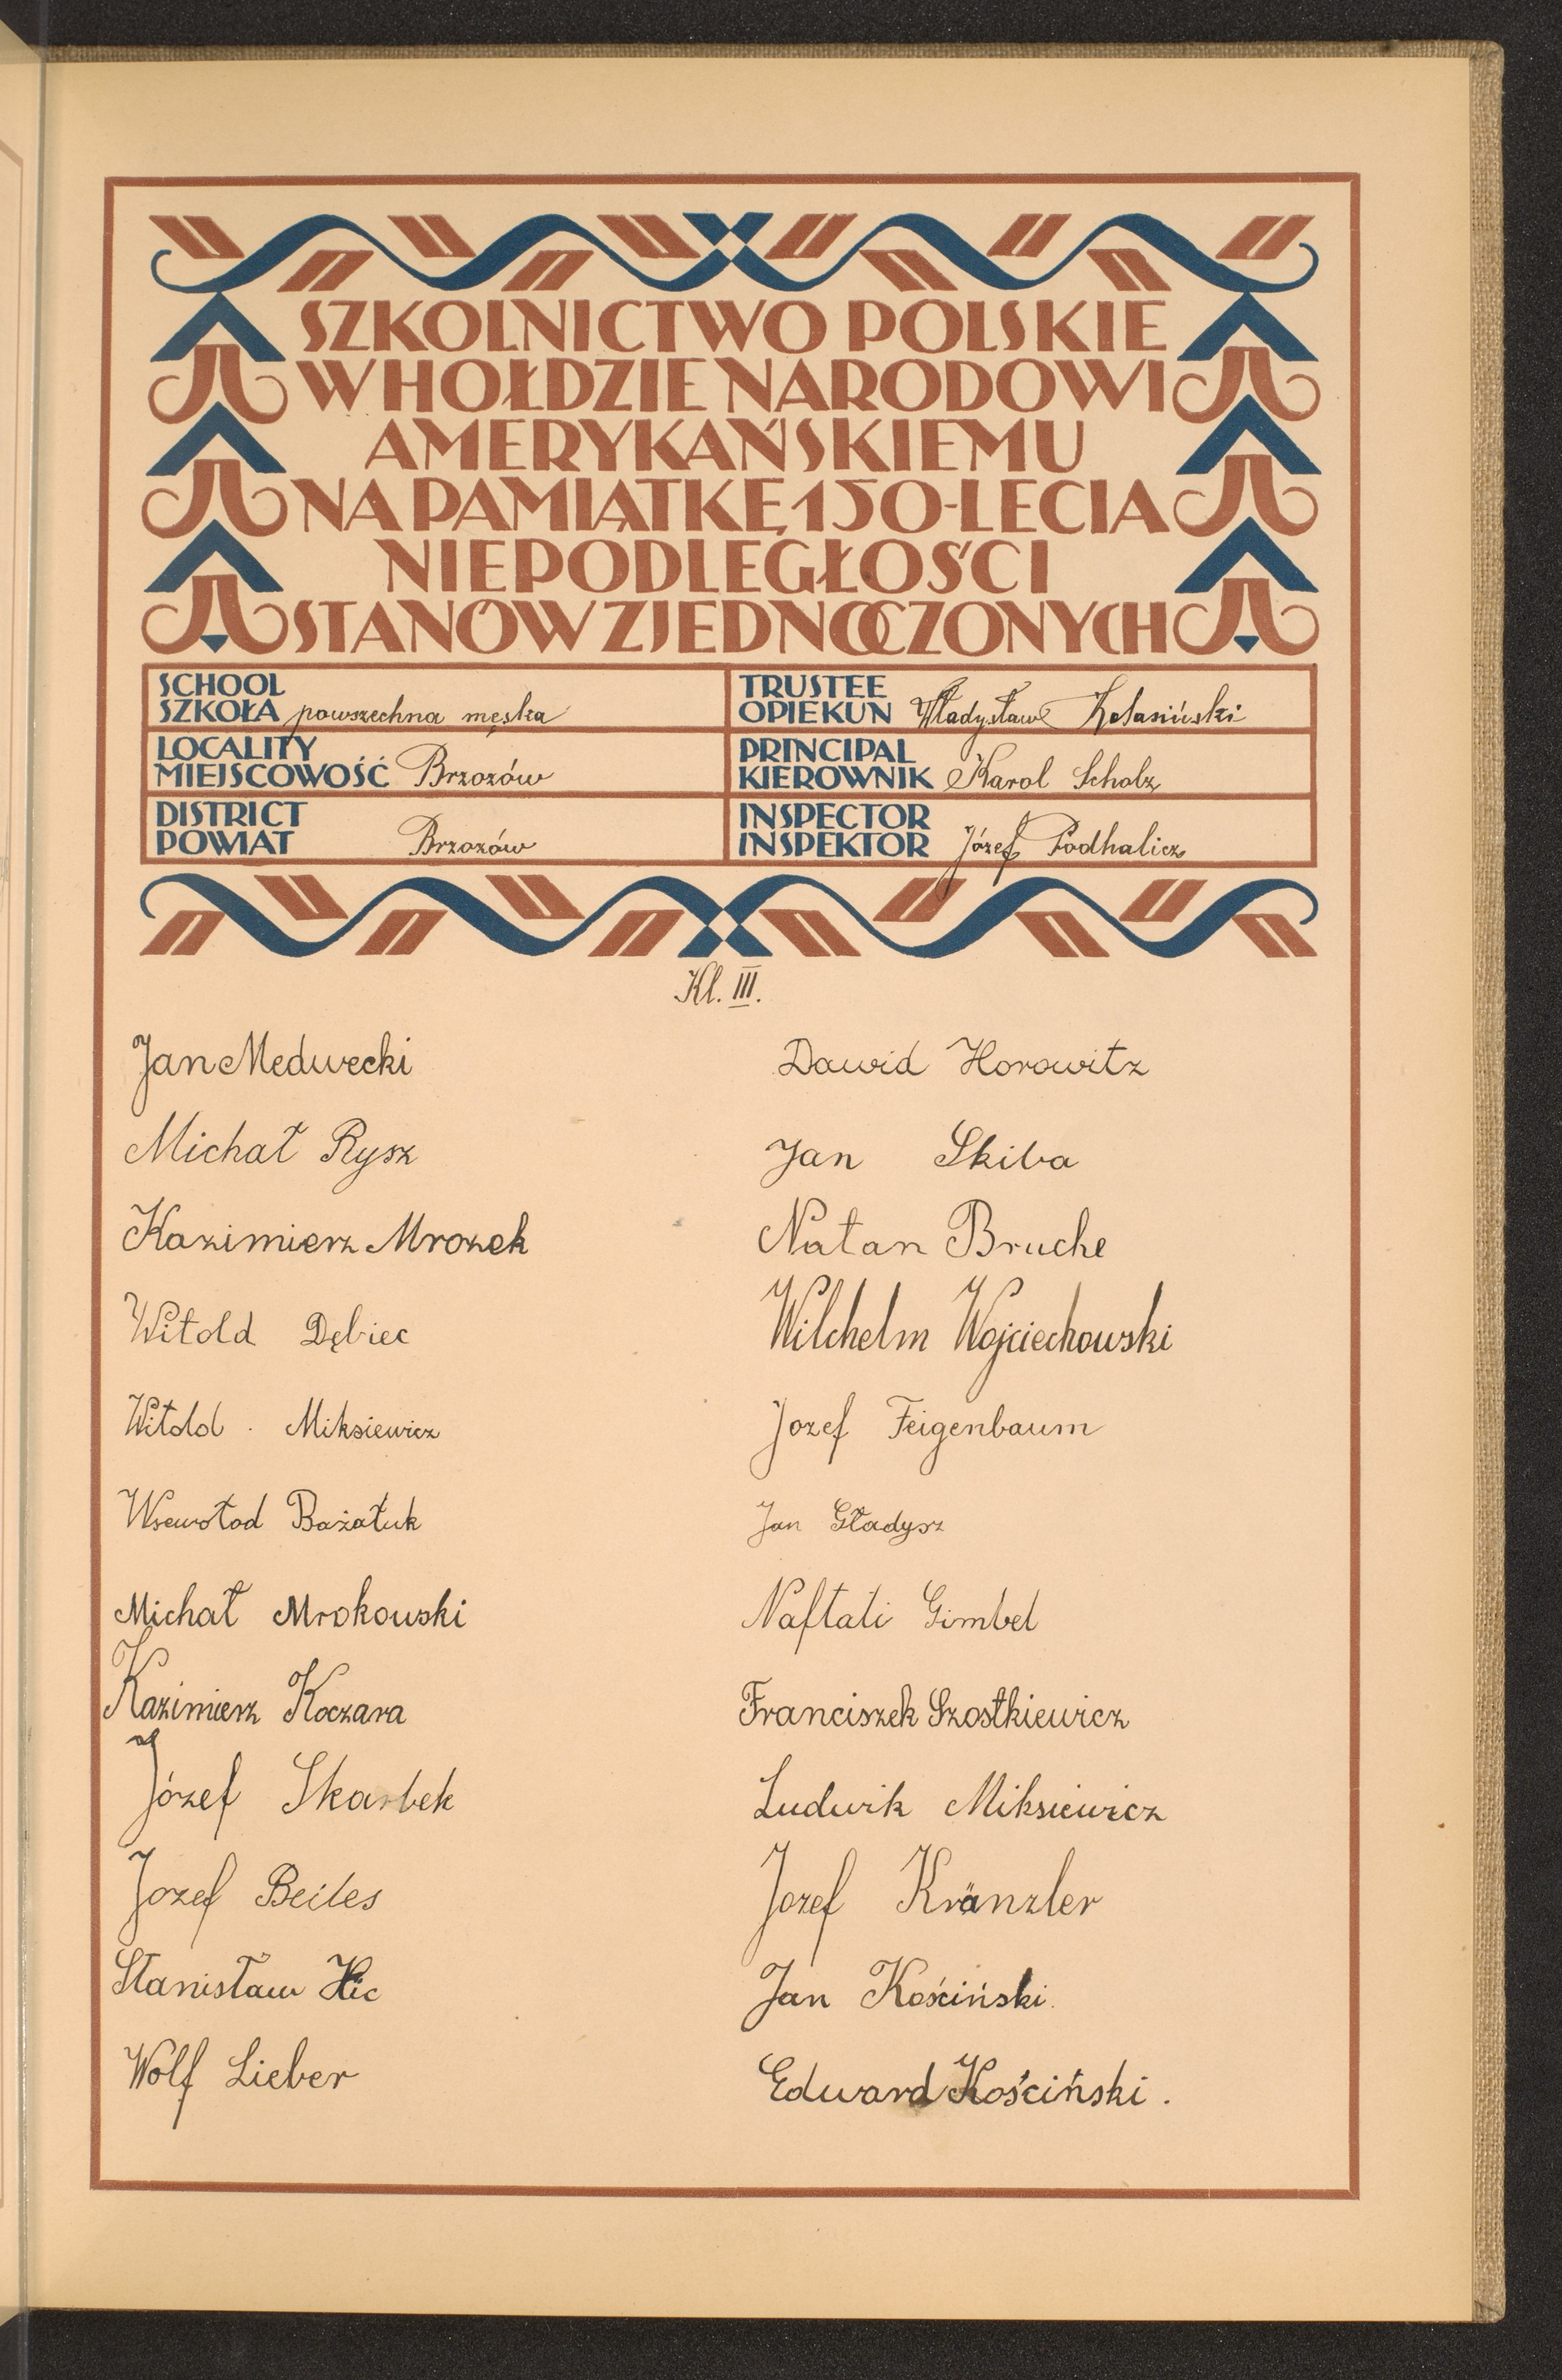 SZKOLNICTWO POLSKIE
W HOŁDZIE NARODOWI
AMERYKAŃSKIEMU
NA PAMIĄTKĘ 150-LECIA
NIEPODLEGŁOŚCI
STANÓW ZJEDNOCZONYCH
SCHOOL
SZKOŁA powszechna męska
LOCALITY
MIEJSCOWOŚĆ Brzozów
DISTRICT
POWIAT Brzozów
TRUSTEE
OPIEKUN Władysław
PRINCIPAL
KIEROWNIK Karol Scholz
INSPECTOR
INSPEKTOR Józef Podhalicz
Kl. III.
Jan Medwecki
Michał Rysz
Kazimierz Mrozek
Witold Dębiec
Witold Miksiewicz
Wsewołod Bażałuk
Michał Mrokowski
Kazimierz Koczara
Józef Skarbek
Jozef Beiles
Stanisław Hic
Wolf Lieber
Dawid Horowitz
Jan Skiba
Natan Bruche
Wilchelm Wojciechowski
Jozef Feigenbaum
Jan Gładysz
Naftali Gimbel
Franciszek Szostkiewicz
Ludwik Miksiewicz
Jozef Kränzler
Jan Kościński.
Edward Kościński.